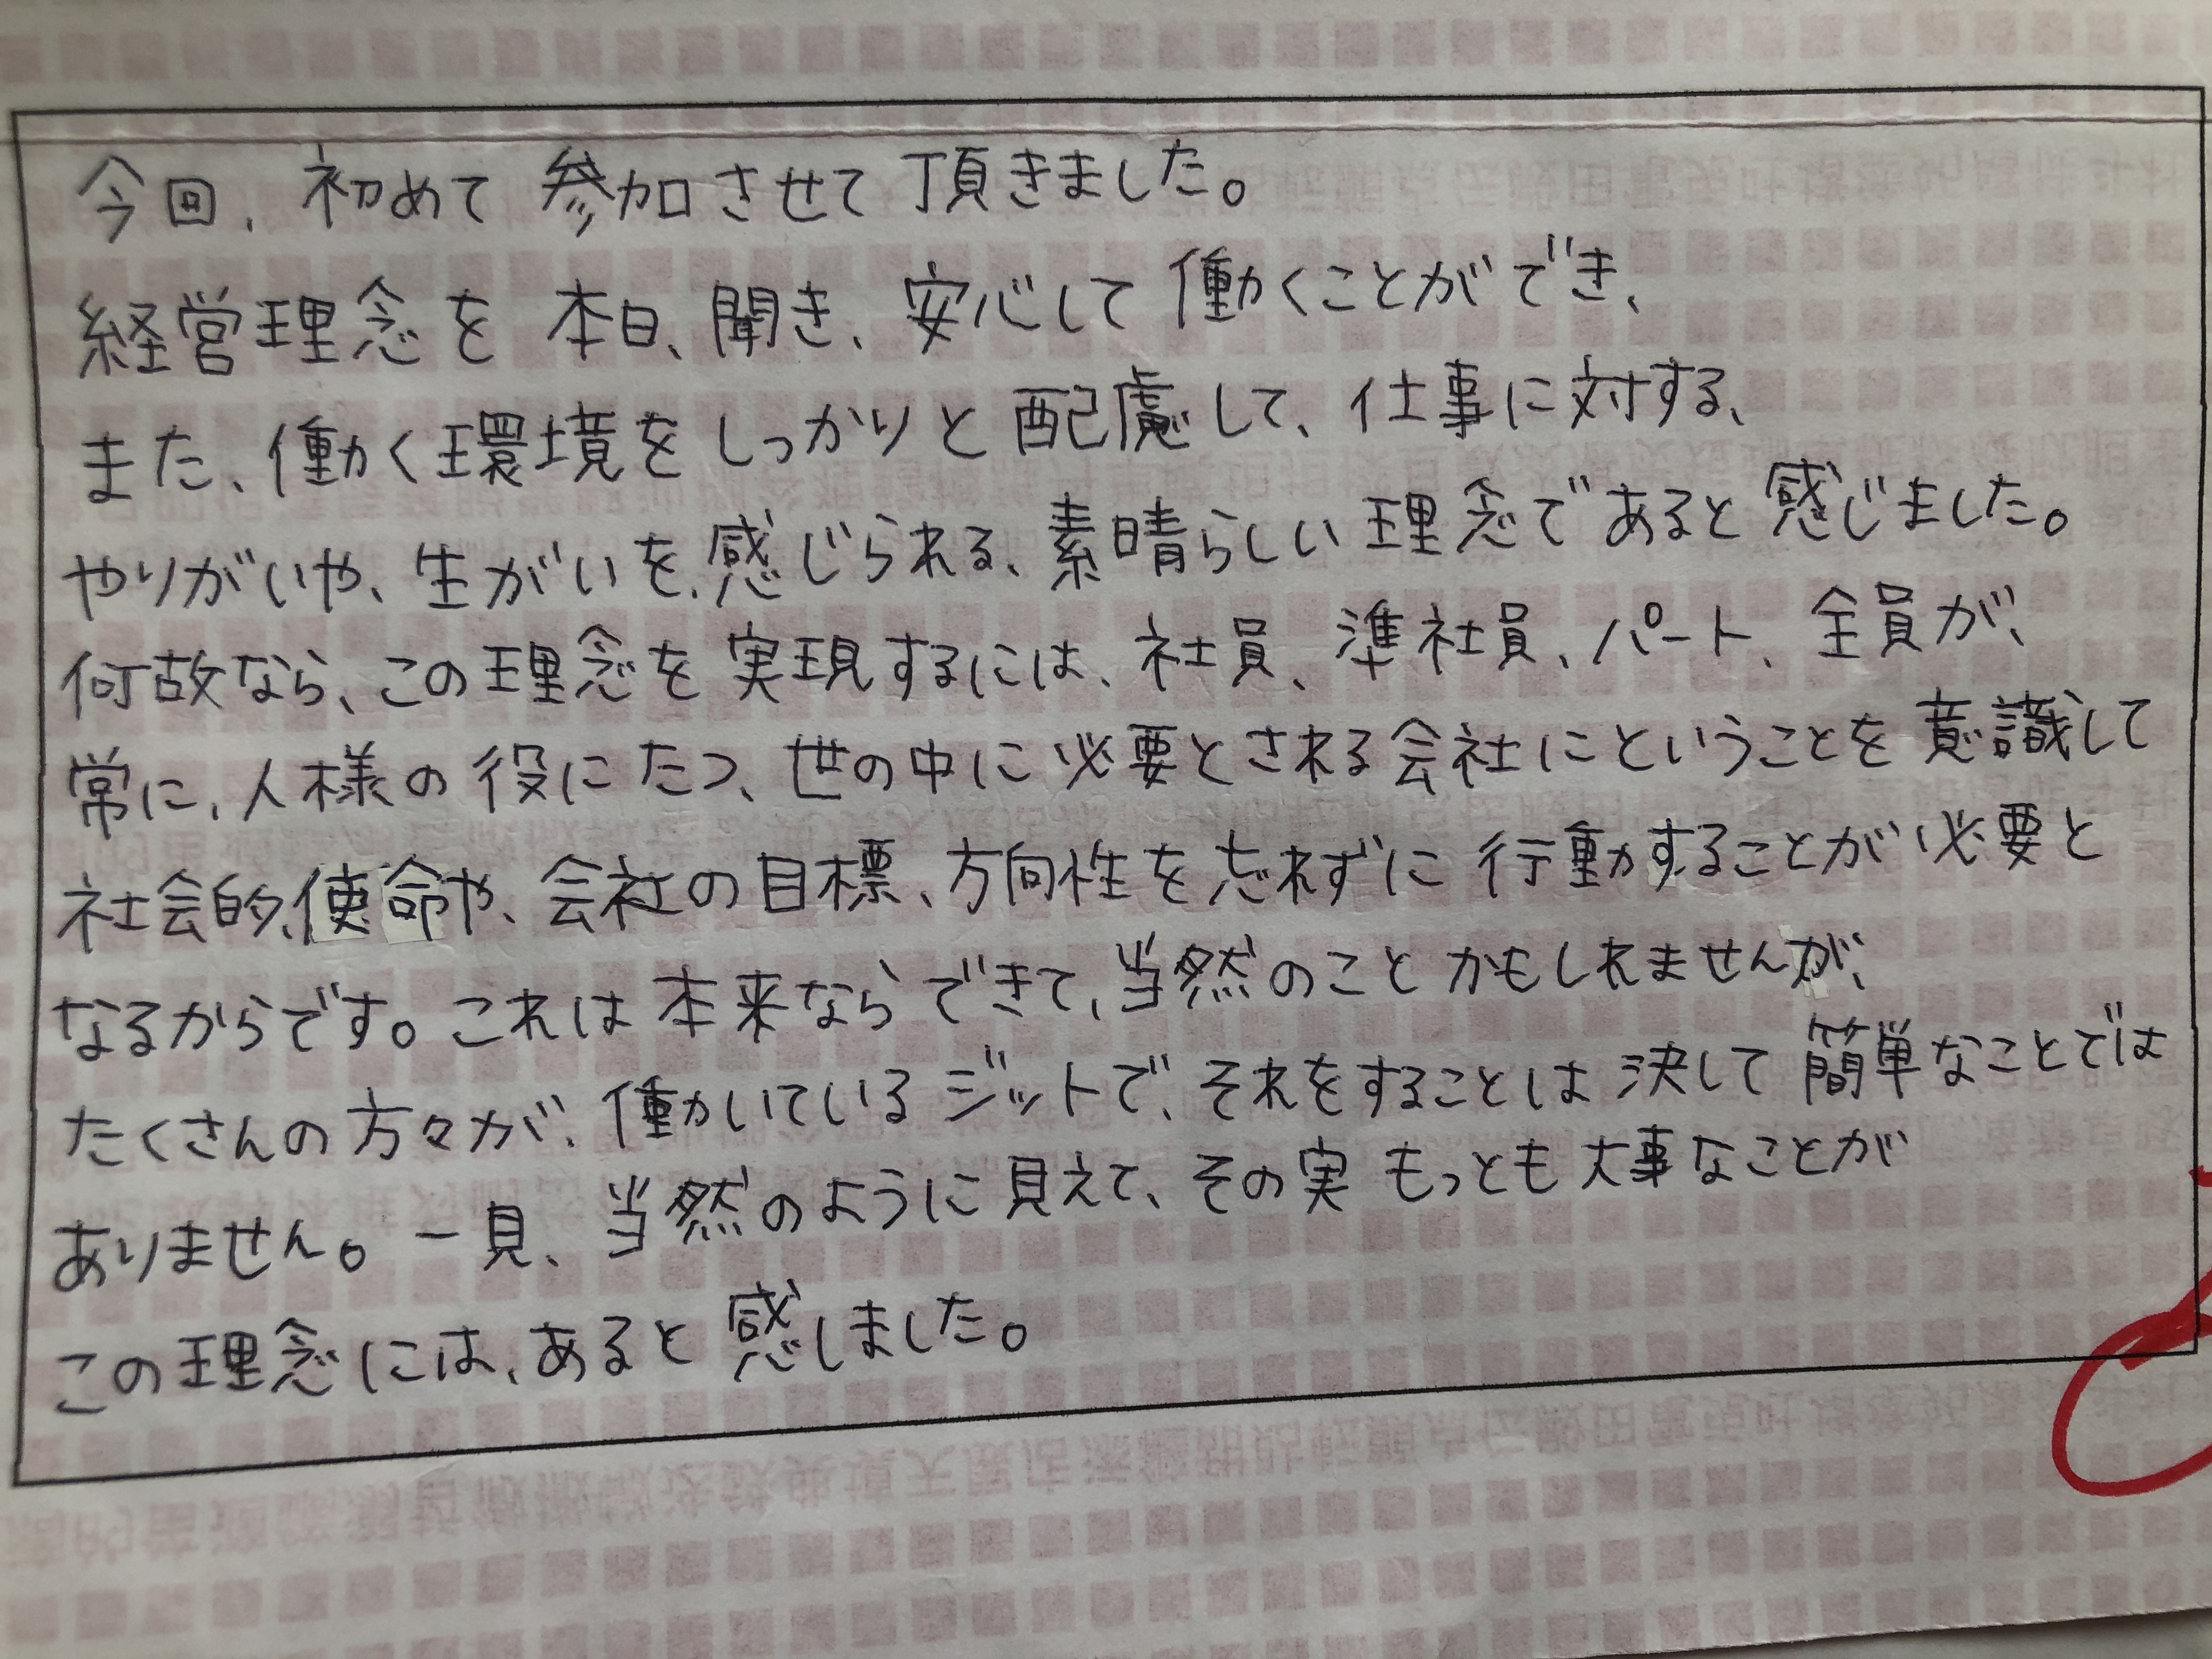 今回、初めて参加させて頂きました。
経営理念を本日、聞き、安心して働くことができ、
また、働く環境をしっかりと配慮して、仕事に対する、
やりがいや、生がいを、感じられる、素晴らしい理念であると感じました。
何故なら、この理念を実現するには、社員、準社員、パート、全員が、
常に、人様の役にたつ、世の中に必要とされる会社にということを意識して
社会的、使命や、会社の目標、方向性を忘れずに行動することが必要と
なるからです。これは本来ならできて、当然のことかもしれませんが、
たくさんの方々が、働かいているジットで、それをすることは決して簡単なことでは
ありません。一見、当然のように見えて、その実もっとも大事なことが
この理念には、あると感しました。